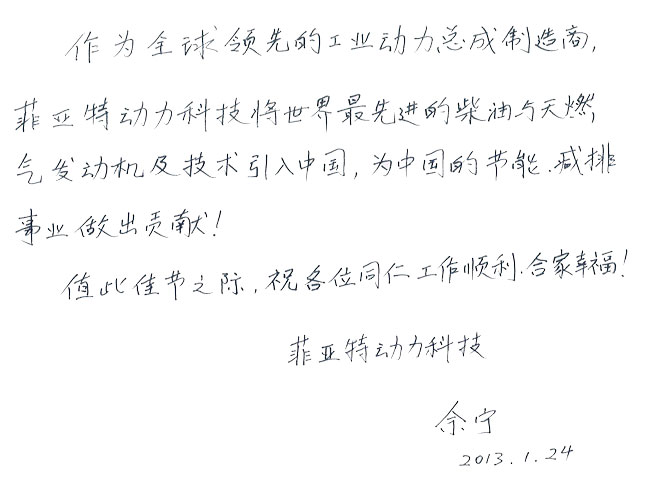 作为全球领先的工业动力总成制造商,
菲亚特动力科技将世界最先进的柴油与天燃
气发动机及技术引入中国, 为中国的节能.减排
事业做出贡献!
值此佳节之际, 祝各位同仁工作顺利.合家幸福!
菲亚特动力科技
余宁
2013.1.24